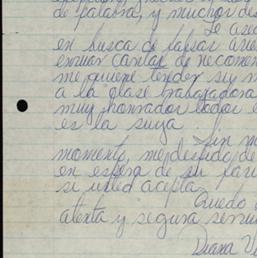 de palabra, y muchos des
Te ase
en busca de
enviar cartas de recomen
me quiere tender su m
a la clase trabajadora
muy honrador
es la suya.
Sin m
momento, me despido de
en espera de su
si usted acepta.
Quedo
atenta y segura servi
Diana V